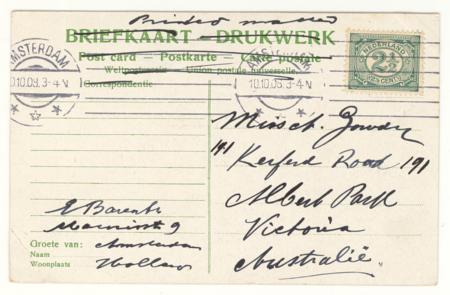 Printed matter
BRIEFKAART - DRUKWERK
Post card — Postkarte — Carte postale
Weltpostverein — Union postale universelle
Correspondentie
AMSTERDAM
10.10.09. 3-4 N
AMSTERDAM
10.10.09. 3-4 N
NEDERLAND
2½
CENT
Miss
191 Kerferd Road 191
Albert Park
Victoria
Australië.
E Barents
9
Groete van: Amsterdam
Naam
Woonplaats Holland